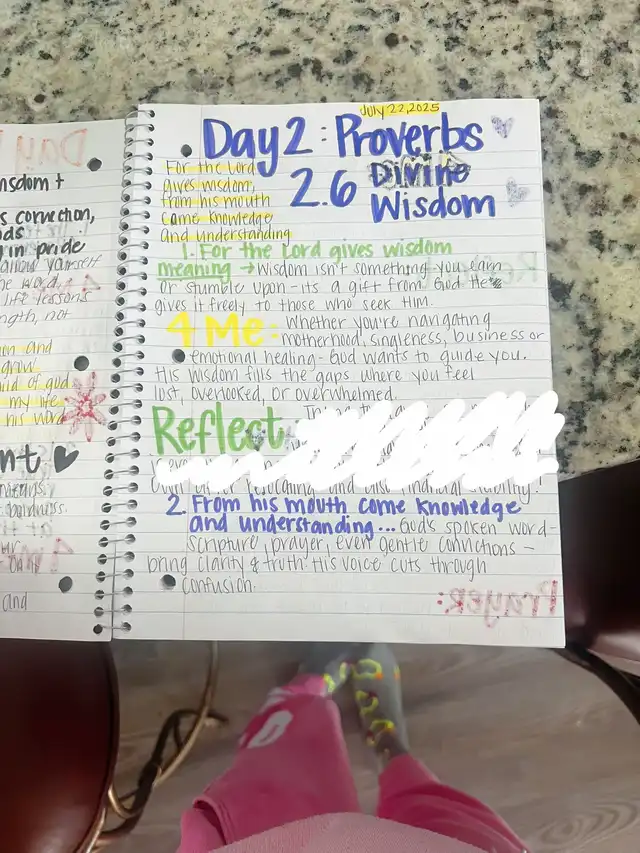 nsdom +
s correction,
ds
g in pride
allow yourself
he word.
life lessons
ngth, not
m and
grow
rid of god
my life
his word
nt
means
guidness.
and
July 22, 2025
Day 2 : Proverbs
2.6 Divine
Wisdom
For the Lord
gives wisdom,
from his mouth
come knowledge
and understanding
1. For the Lord gives wisdom
meaning → Wisdom isn't something you earn
or stumble upon - its a gift from God He
gives it freely to those who seek Him.
4 Me: Whether you're navigating
motherhood, singleness, business or
emotional healing - God wants to guide you.
His wisdom fills the gaps where you feel
lost, overlooked, or overwhelmed.
Reflect
2. From his mouth come knowledge
and understanding... God's spoken word -
Scripture, prayer, even gentle convictions -
bring clarity & truth. His voice cuts through
confusion.
Prayer: